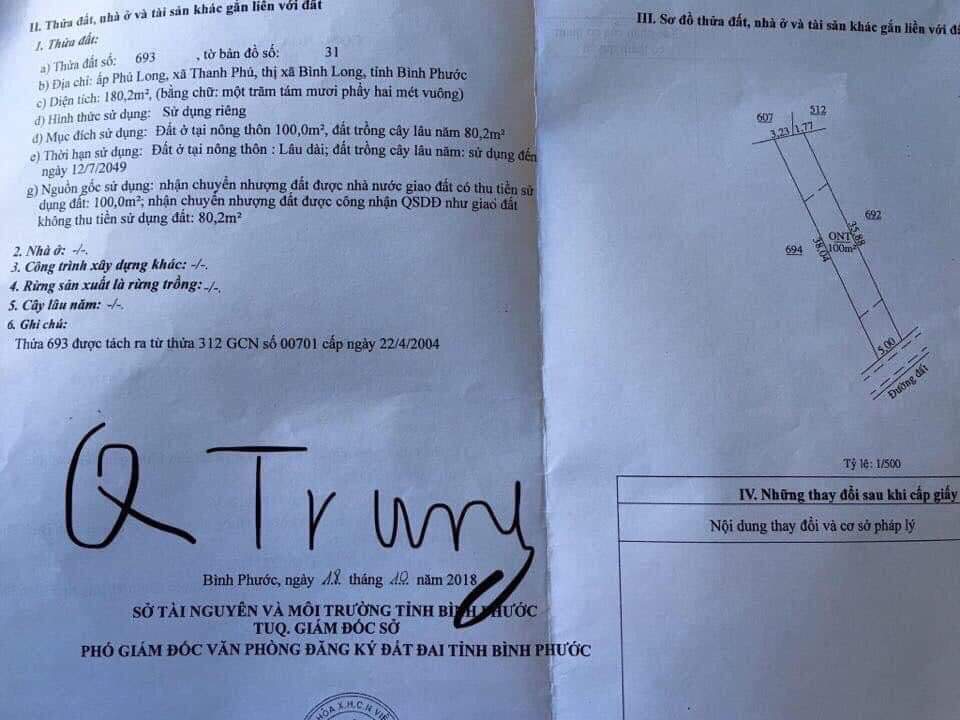 II. Thửa đất, nhà ở và tài sản khác gắn liền với đất
1. Thửa đất:
a) Thửa đất số: 693 , tờ bản đồ số: 31
b) Địa chỉ: ấp Phú Long, xã Thanh Phú, thị xã Bình Long, tỉnh Bình Phước
c) Diện tích: 180,2m², (bằng chữ: một trăm tám mươi phẩy hai mét vuông)
d) Hình thức sử dụng: Sử dụng riêng
đ) Mục đích sử dụng: Đất ở tại nông thôn 100,0m², đất trồng cây lâu năm 80,2m²
e) Thời hạn sử dụng: Đất ở tại nông thôn : Lâu dài; đất trồng cây lâu năm: sử dụng đến
ngày 12/7/2049
g) Nguồn gốc sử dụng: nhận chuyển nhượng đất được nhà nước giao đất có thu tiền sử
dụng đất: 100,0m²; nhận chuyển nhượng đất được công nhận QSDĐ như giao đất
không thu tiền sử dụng đất: 80,2m²
2. Nhà ở: -/-.
3. Công trình xây dựng khác: -/-.
4. Rừng sản xuất là rừng trồng: -/-.
5. Cây lâu năm: -/-.
6. Ghi chú:
Thửa 693 được tách ra từ thửa 312 GCN số 00701 cấp ngày 22/4/2004
Q Trung
Bình Phước, ngày 18 tháng 10 năm 2018
SỞ TÀI NGUYÊN VÀ MÔI TRƯỜNG TỈNH BÌNH PHƯỚC
TUQ. GIÁM ĐỐC SỞ
PHÓ GIÁM ĐỐC VĂN PHÒNG ĐĂNG KÝ ĐẤT ĐAI TỈNH BÌNH PHƯỚC
HÒA X.H.C.N VIỆ
III. Sơ đồ thửa đất, nhà ở và tài sản khác gắn liền với đấ
607
512
3,23
1,77
692
35,88
ONT
100m²
694
38,04
5,00
Đường đất
Tỷ lệ: 1/500
IV. Những thay đổi sau khi cấp giấy
Nội dung thay đổi và cơ sở pháp lý